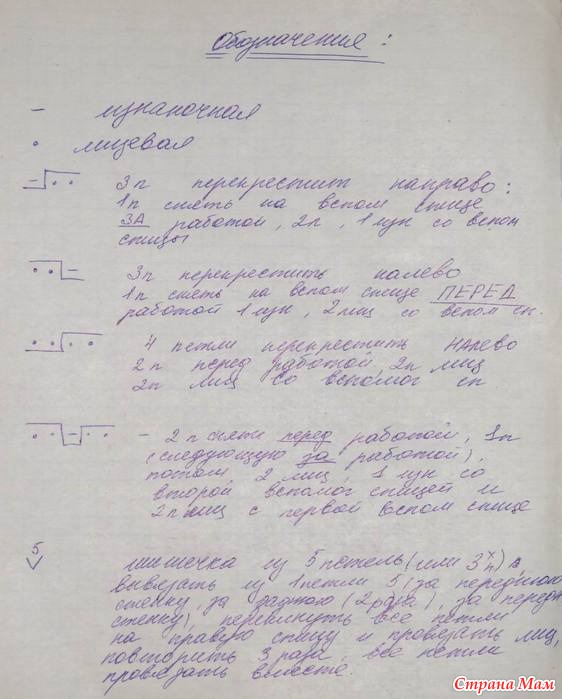 Обозначения:
– изнаночная
• лицевая
3п перекрестит направо:
1п снять на вспом спице
ЗА работой, 2л, 1 изн со вспом
спицы
3п перекрестить налево
1п снять на вспом спице ПЕРЕД
работой 1 изн, 2 лиц со вспом сп.
4 петли перекрестить НАЛЕВО
2п перед работой, 2п лиц
2п лиц со вспомог сп
– 2п сняти перед работой, 1п
(следующую за работой),
потом 2 лиц, 1 изн со
второй вспомог спицей и
2п лиц с первой вспом спице
5 шишечка из 5 петель (или 3х)
вывязать из 1 петли 5 (за переднюю
стенку, за заднюю (2 раза), за перед
стенку), перекинуть все петли
на правую спицу и провязать лиц,
повторить 3 раза, все петли
провязать вместе.
Страна Мам